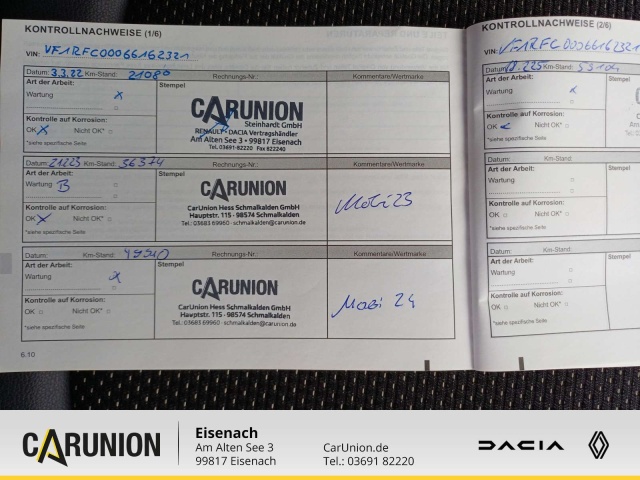 KONTROLLNACHWEISE (1/6)
VIN: VF1RFC00066162321
Datum: 3.3.22 Km-Stand: 21080
Rechnungs-Nr.:
Kommentare/Wertmarke
Art der Arbeit:
Wartung x
Stempel
Kontrolle auf Korrosion:
OK x Nicht OK*
*siehe spezifische Seite
CARUNION
Steinhardt GmbH
RENAULT • DACIA Vertragshändler
Am Alten See 3 • 99817 Eisenach
Tel. 03691-82220 Fax 822240
Datum: Km-Stand: 36374
Rechnungs-Nr.:
Kommentare/Wertmarke
Art der Arbeit:
Wartung B
Stempel
Kontrolle auf Korrosion:
OK x Nicht OK*
*siehe spezifische Seite
CARUNION
CarUnion Hess Schmalkalden GmbH
Hauptstr. 115 · 98574 Schmalkalden
Tel.: 03683 69960 · schmalkalden@carunion.de
Mobi 23
Datum: Km-Stand:
Rechnungs-Nr.:
Kommentare/Wertmarke
Art der Arbeit:
Wartung x
Stempel
Kontrolle auf Korrosion:
OK Nicht OK*
*siehe spezifische Seite
CARUNION
CarUnion Hess Schmalkalden GmbH
Hauptstr. 115 · 98574 Schmalkalden
Tel.: 03683 69960 · schmalkalden@carunion.de
Mobi 24
6.10
KONTROLLNACHWEISE (2/6)
VIN: VF1RFC00066162321
Datum: Km-Stand:
Art der Arbeit:
Wartung x
Stempel
Kontrolle auf Korrosion:
OK Nicht OK*
*siehe spezifische Seite
Datum: Km-Stand:
Art der Arbeit:
Wartung
Stempel
Kontrolle auf Korrosion:
OK Nicht OK*
*siehe spezifische Seite
Datum: Km-Stand:
Art der Arbeit:
Wartung
Stempel
Kontrolle auf Korrosion:
OK Nicht OK*
*siehe spezifische Seite
CARUNION
Eisenach
Am Alten See 3
99817 Eisenach
CarUnion.de
Tel.: 03691 82220
DACIA